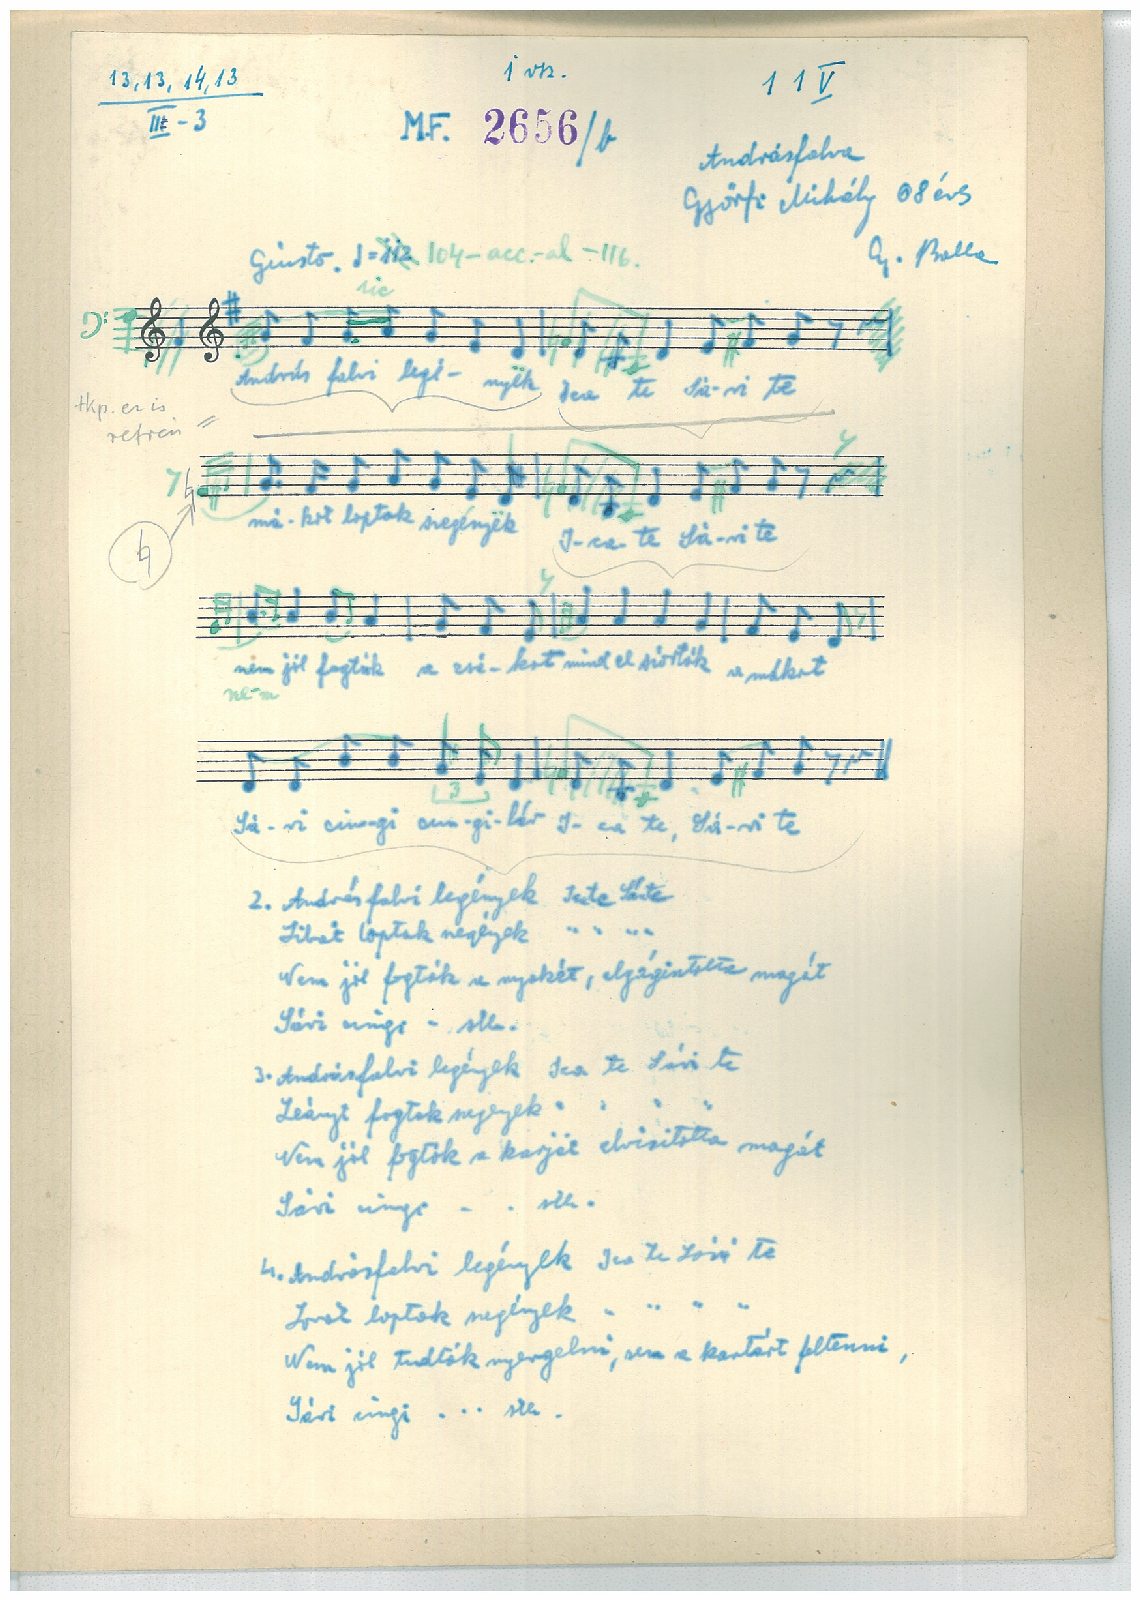 13, 13, 14, 13
III - 3
1 vsz.
1 1 V
M.F. 2656/b
Andrásfalva
Györfi Mihály 68 éves
Gy. Balla
Giusto. 104 - acc. - al - 116.
sic
András falvi legé - nyëk Ica te Sá-vi te
tkp. ez is
refrén
má-kot loptak szegényëk I-ca-te Sá-vi te
nem jól fogták a zsá-kot mind el szórták a mákot
ne-m
Sá-vi cin-gi cun-gi-lár I-ca te, Sá-vi te
3
2. Andrásfalvi legények
Libát loptak szegények " " " "
Nem jól fogták a nyakát, elgágintotta magát
Sávi cingi - stb.
3. Andrásfalvi legények Ica te Sávi te
Leányt fogtak szegények " " " "
Nem jól fogták a karját elvisította magát
Sávi cingi - . stb.
4. Andrásfalvi legények Ica te Sávi te
Lovat loptak szegények " " " "
Nem jól tudták nyergelni, sem a kantárt feltenni,
Sávi cingi ... stb.